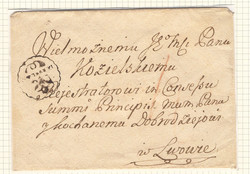 Wielmożnemu Jgć Mć Panu
Kozielskiemu
Regestratorowi in Consessu
Summi Principis mum Pana
a kochanemu Dobrodziejowi
w Lwowie